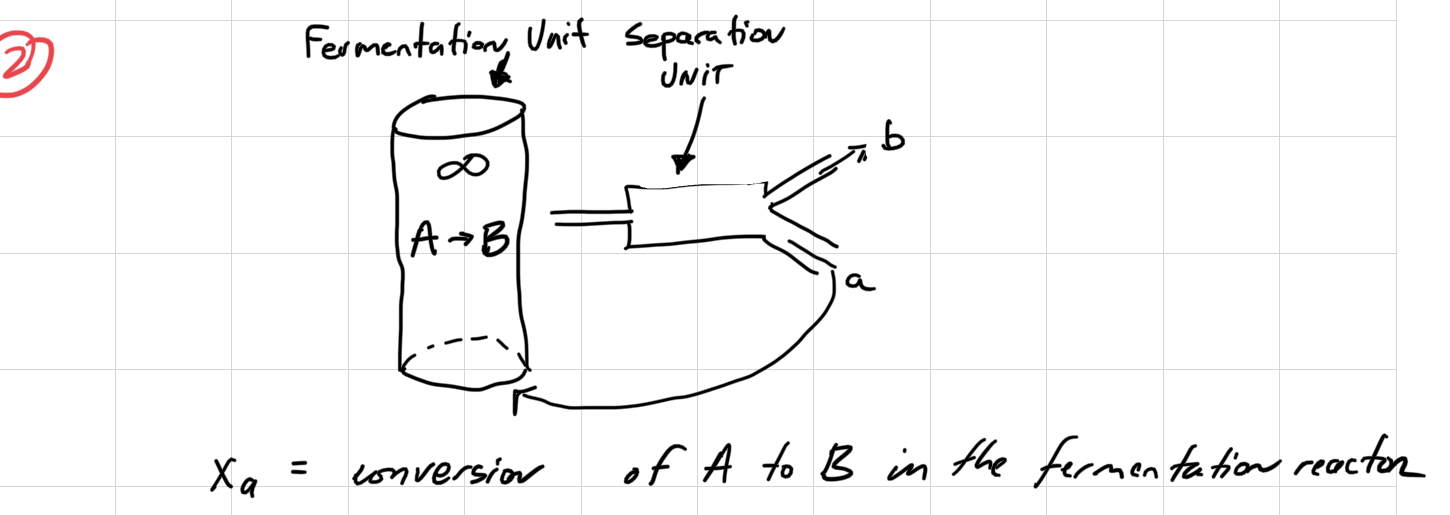 2
Fermentation Unit Separation
UNIT
b
∞
A → B
a
Xa = conversion of A to B in the fermentation reactor